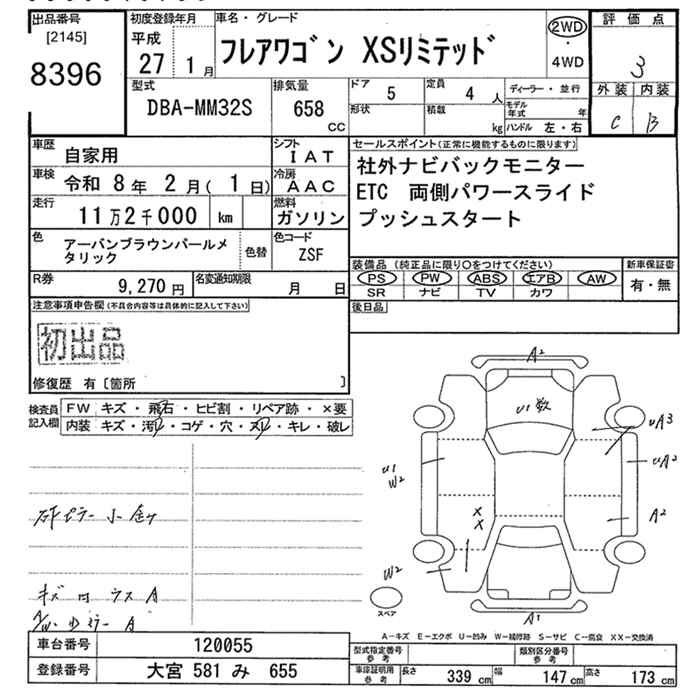 出品番号
[2145]
8396
初度登録年月
平成
27 1月
車名・グレード
フレアワゴン XSリミテッド
2WD
・
4WD
評価点
3
外装 内装
C B
型式
DBA-MM32S
排気量
658
CC
ドア 5
定員 4 人
形状
積載 kg
ディーラー・並行
モデル年式 年
ハンドル 左・右
車歴 自家用
シフト IAT
車検 令和 8年 2月(1日)
冷房 AAC
走行 11万2千000 km
燃料 ガソリン
色 アーバンブラウンパールメタリック
色替
色コード ZSF
R券 9,270円
名変通知期限 月 日
セールスポイント(正常に機能するものに限ります)
社外ナビバックモニター
ETC 両側パワースライド
プッシュスタート
装備品 (純正品に限り〇をつけてください)
PS PW ABS エアB AW
SR ナビ TV カワ
新車保証書
有・無
後日品
注意事項申告欄(不具合内容等は具体的に記入して下さい)
初出品
修復歴 有〔箇所 〕
検査員記入欄
FW キズ・飛石・ヒビ割・リペア跡・×要
内装 キズ・汚れ・コゲ・穴・ヌレ・キレ・破レ
A2
U1数
UA3
UA2
A2
U1
W2
X
X
W2
A1
スペア
A-キズ E-エクボ U-凹み W-補修跡 S-サビ C-腐食 XX-交換済
車台番号 120055
登録番号 大宮 581 み 655
型式指定番号 参考
類別区分番号 参考
車庫証明用 参考
長さ 339cm
幅 147cm
高さ 173cm